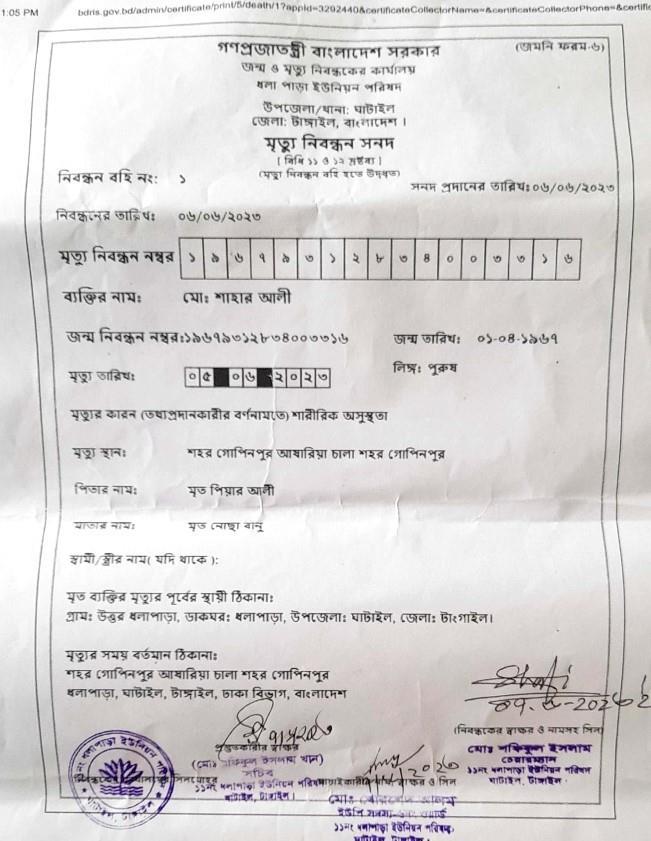 1:05 PM bdris.gov.bd/admin/certificate/print/5/death/1?appId=3292440&certificateCollectorName=&certificateCollectorPhone=&certifi
গণপ্রজাতন্ত্রী বাংলাদেশ সরকার
(জমনি ফরম-৬)
জন্ম ও মৃত্যু নিবন্ধকের কার্যালয়
ধলা পাড়া ইউনিয়ন পরিষদ
উপজেলা/থানা: ঘাটাইল
জেলা: টাঙ্গাইল, বাংলাদেশ ।
মৃত্যু নিবন্ধন সনদ
[ বিধি ১১ ও ১২ দ্রষ্টব্য ]
(মৃত্যু নিবন্ধন বহি হতে উদ্ধৃত)
নিবন্ধন বহি নং: ১
সনদ প্রদানের তারিখ: ০৬/০৬/২০২৩
নিবন্ধনের তারিখ: ০৬/০৬/২০২৩
মৃত্যু নিবন্ধন নম্বর ১৯৬৭৯৩১২৮৩৪০০৩৩১৬
ব্যক্তির নাম: মো: শাহার আলী
জন্ম নিবন্ধন নম্বর:১৯৬৭৯৩১২৮৩৪০০৩৩১৬ জন্ম তারিখ: ০১-০৪-১৯৬৭
মৃত্যু তারিখ: ০৫ ০৬ ২০২৩ লিঙ্গ: পুরুষ
মৃত্যুর কারন (তথ্যপ্রদানকারীর বর্ণনামতে) শারীরিক অসুস্থতা
মৃত্যু স্থান: শহর গোপিনপুর আষারিয়া চালা শহর গোপিনপুর
পিতার নাম: মৃত পিয়ার আলী
মাতার নাম: মৃত নোছা বানু
স্বামী/স্ত্রীর নাম( যদি থাকে ):
মৃত ব্যক্তির মৃত্যুর পূর্বের স্থায়ী ঠিকানা:
গ্রাম: উত্তর ধলাপাড়া, ডাকঘর: ধলাপাড়া, উপজেলা: ঘাটাইল, জেলা: টাংগাইল।
মৃত্যুর সময় বর্তমান ঠিকানা:
শহর গোপিনপুর আষারিয়া চালা শহর গোপিনপুর
ধলাপাড়া, ঘাটাইল, টাঙ্গাইল, ঢাকা বিভাগ, বাংলাদেশ
(নিবন্ধকের স্বাক্ষর ও নামসহ সিল)
মোঃ শফিকুল ইসলাম
চেয়ারম্যান
১১নং ধলাপাড়া ইউনিয়ন পরিষদ
ঘাটাইল, টাঙ্গাইল।
প্রস্তুতকারীর স্বাক্ষর
সচিব
১১নং ধলাপাড়া ইউনিয়ন পরিষদ
ঘাটাইল, টাঙ্গাইল।
১১নং ধলাপাড়া ইউনিয়ন পরিষদ
ঘাটাইল, টাঙ্গাইল।